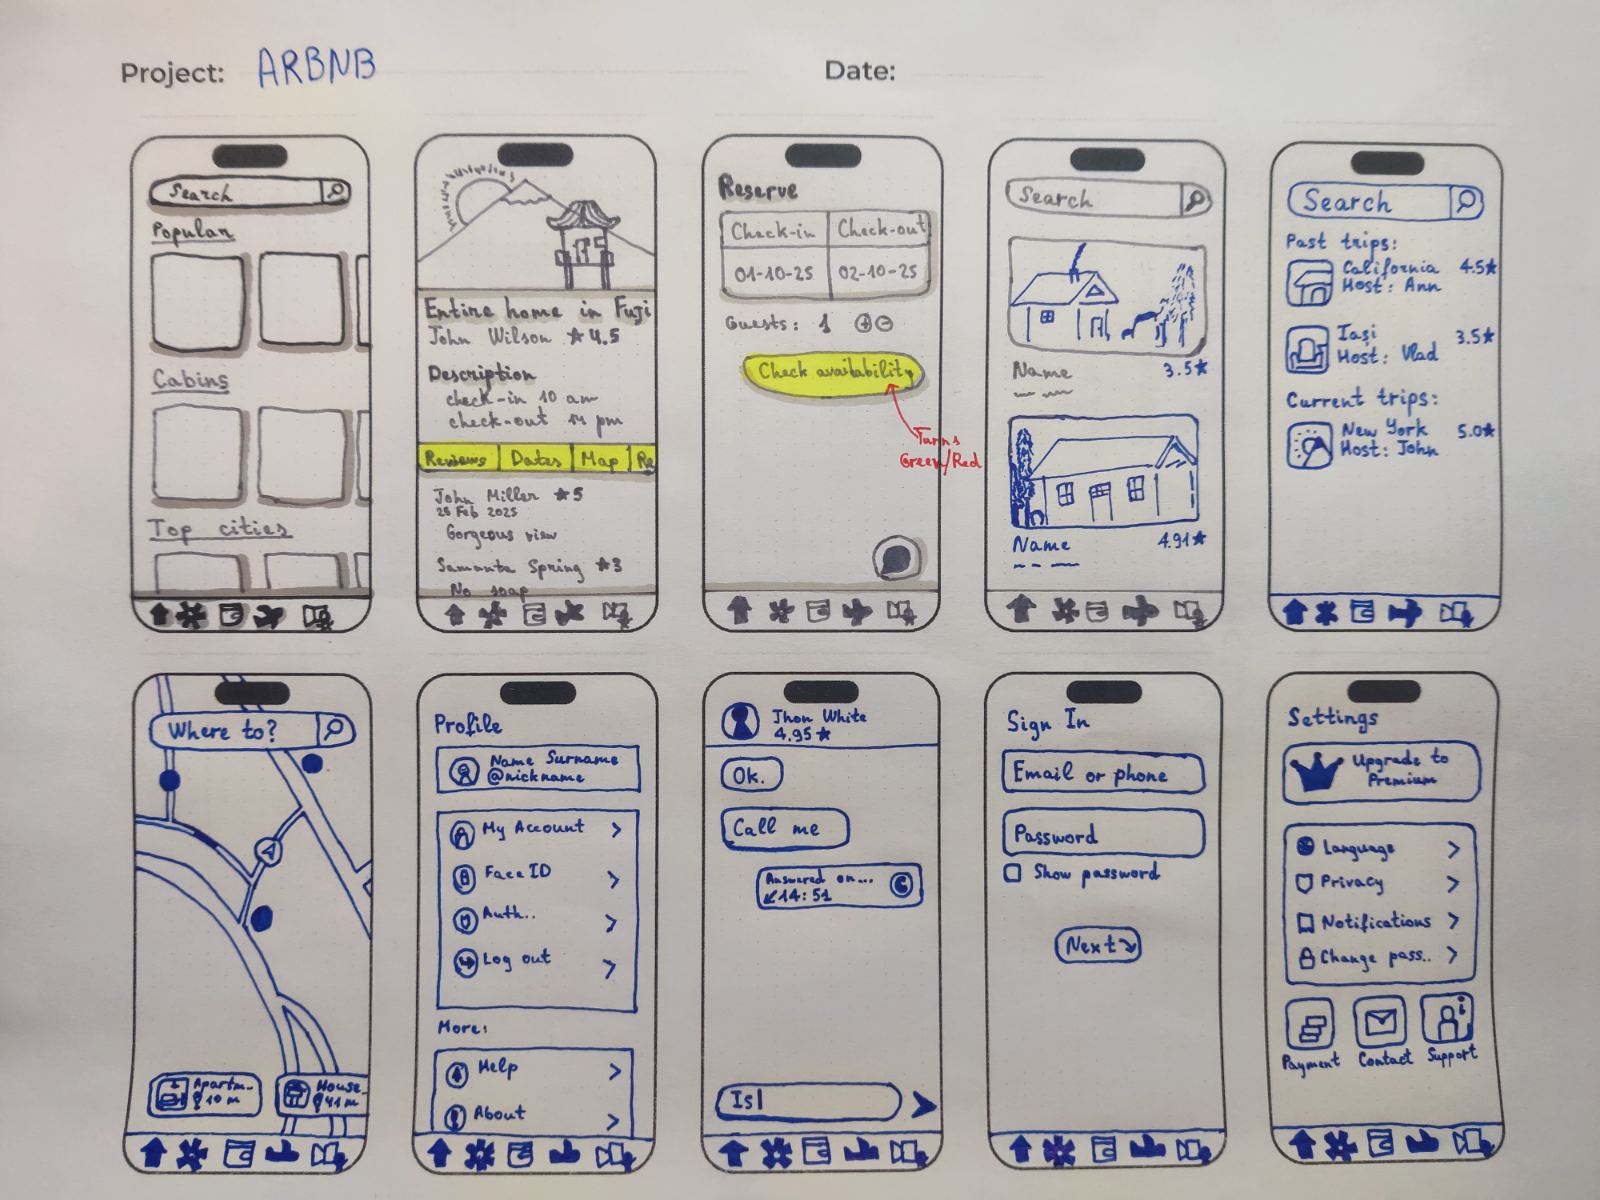 Project: ARBNB
Date:
Search
Popular
Cabins
Top cities
Entire home in Fuji
John Wilson ★ 4.5
Description
check-in 10 am
check-out 14 pm
Reviews Dates Map Re
John Miller ★5
25 Feb 2025
Gorgeous view
Samanta Spring ★3
No soap
Reserve
Check-in Check-out
01-10-25 02-10-25
Guests: 1
Check availability
Turns
Green/Red
Search
Name 3.5★
Name 4.91★
Search
Past trips:
California 4.5★
Host: Ann
Iași 3.5★
Host: Vlad
Current trips:
New York 5.0★
Host: John
Where to?
Apartm..
10 m
House..
41 m
Profile
Name Surname
@nickname
My Account
Face ID
Auth..
Log out
More:
Help
About
Jhon White
4.95★
Ok.
Call me
Answered on...
↙14:51
Is|
Sign In
Email or phone
Password
Show password
Next
Settings
Upgrade to
Premium
Language
Privacy
Notifications
Change pass..
Payment Contact Support